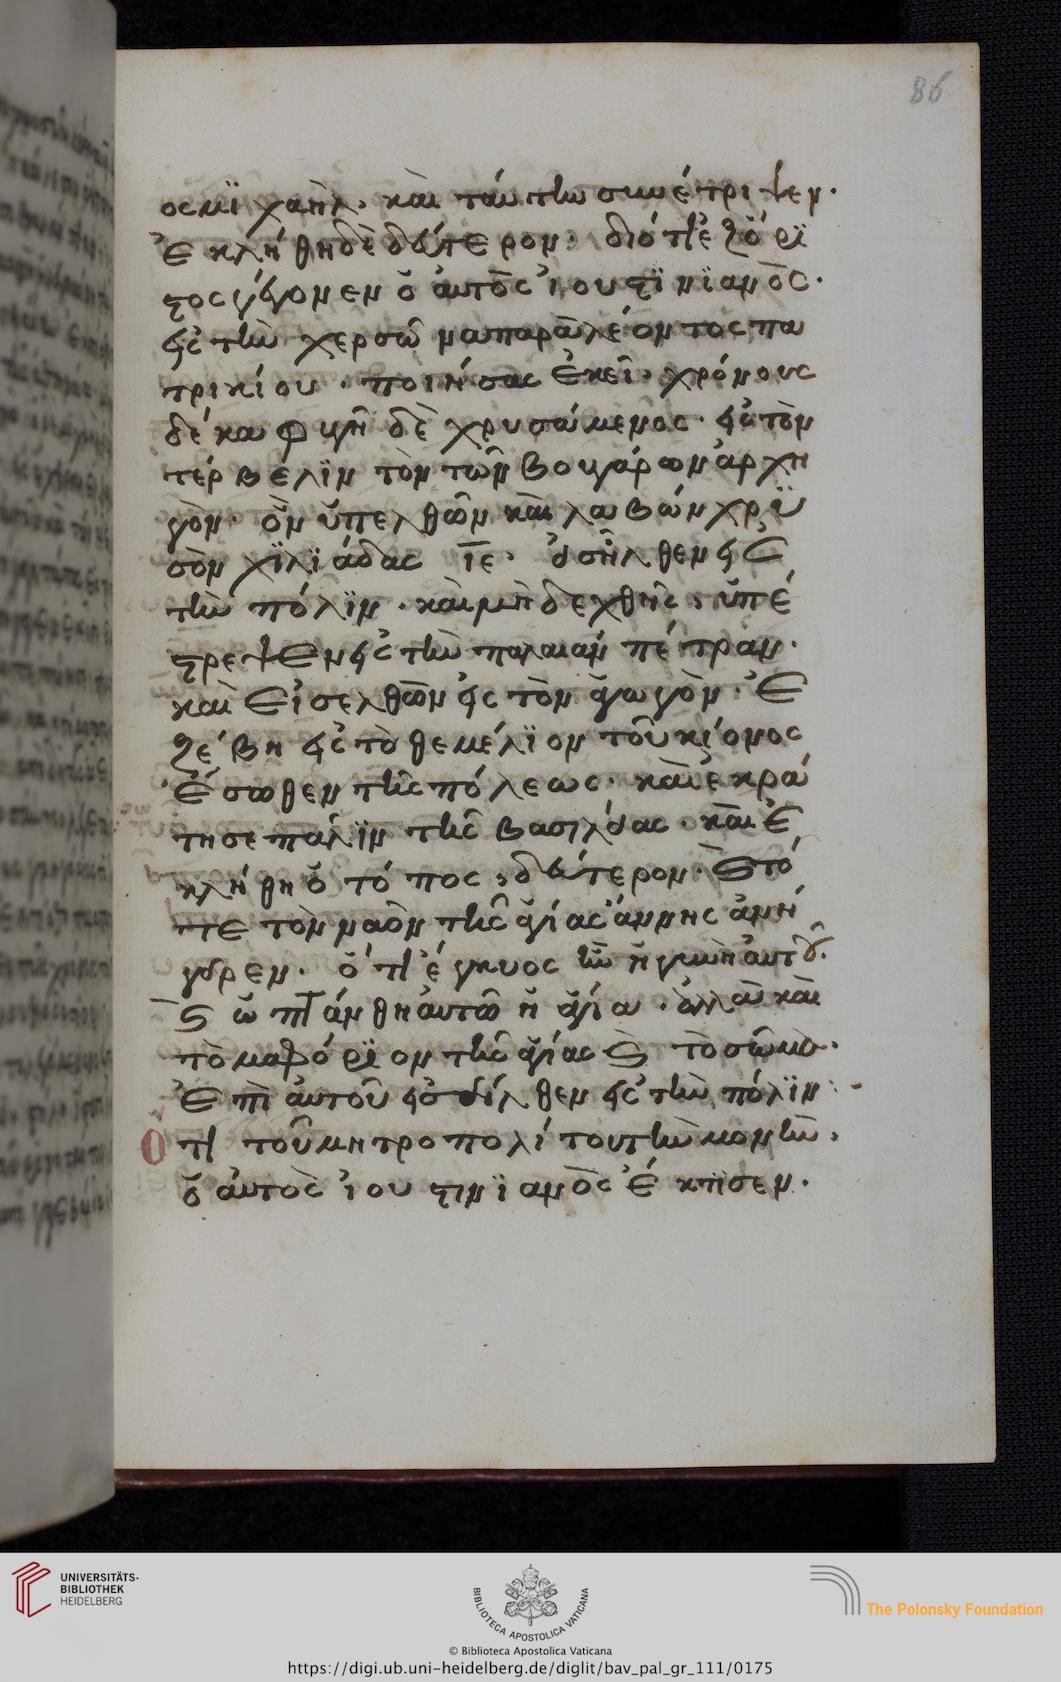 86
ος μϊχαὴλ· καὶ ταύτὴν συνέτριψεν.
Ἐκλήθη δὲ δεύτερον· διότι ἐξόρϊ
στος γέγονεν ὁ αὐτὸς ἰουστϊνϊανὸς·
εἰς τὴν χερσῶνα παρὰ λέοντος πα
τρικίου· ποιήσας ἐκεῖ· χρόνους
δέκα φυγῇ δὲ χρησάμενος· εἰς τὸν
τέρβελϊν τὸν τῶν βουλγάρων ἀρχη
γὸν· ὃν ὑπελθὼν καὶ λαβὼν χρϋ
σὸν χϊλϊάδας ιε· εἰσῆλθεν εἰς
τὴν πόλϊν· καὶ μὴ δεχθῆς, ὑπέ
στρεψεν εἰς τὴν παλαιὰν πέτραν·
καὶ εἰσελθὼν εἰς τὸν ἀγωγὸν· ἐ
ξέβη εἰς τὸ θεμέλϊον τοῦ κίονος
ἔσωθεν τῆς πόλεως· καὶ ἐκρά
τησε πάλϊν τῆς βασιλείας· καὶ ἐ
κλήθη ὁ τόπος, δεύτερον· Ὁ τό
τε τὸν ναὸν τῆς ἁγίας ἄννης ἀνή
γειρεν· ὅτι ἔγκυος ὢν ἡ γυνὴ αὐτοῦ.
ὤπτάνθη αὐτῶ ἡ ἁγία· ἀλλὰ καὶ
τὸ μαφόρϊον τῆς ἁγίας τὸ σῶμα·
Ἐπὶ αὐτοῦ εἰσῆλθεν εἰς τὴν πόλϊν
Ὅτι τοῦ μητροπολίτου τὴν μονὴν,
ὁ αὐτὸς ἰουστινϊανὸς ἔκτϊσεν.
UNIVERSITÄTS-
BIBLIOTHEK
HEIDELBERG
BIBLIOTECA APOSTOLICA VATICANA
The Polonsky Foundation
© Biblioteca Apostolica Vaticana
https://digi.ub.uni-heidelberg.de/diglit/bav_pal_gr_111/0175